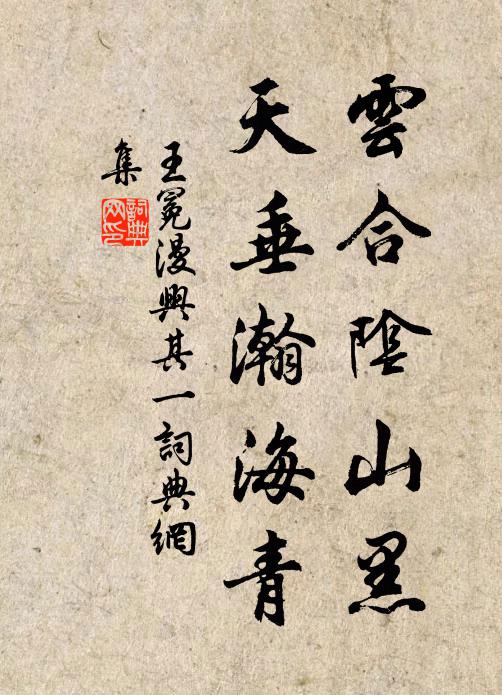 雲合陰山黑
天垂瀚海青
王冕漫興其一詞典網
集
詞典
网印